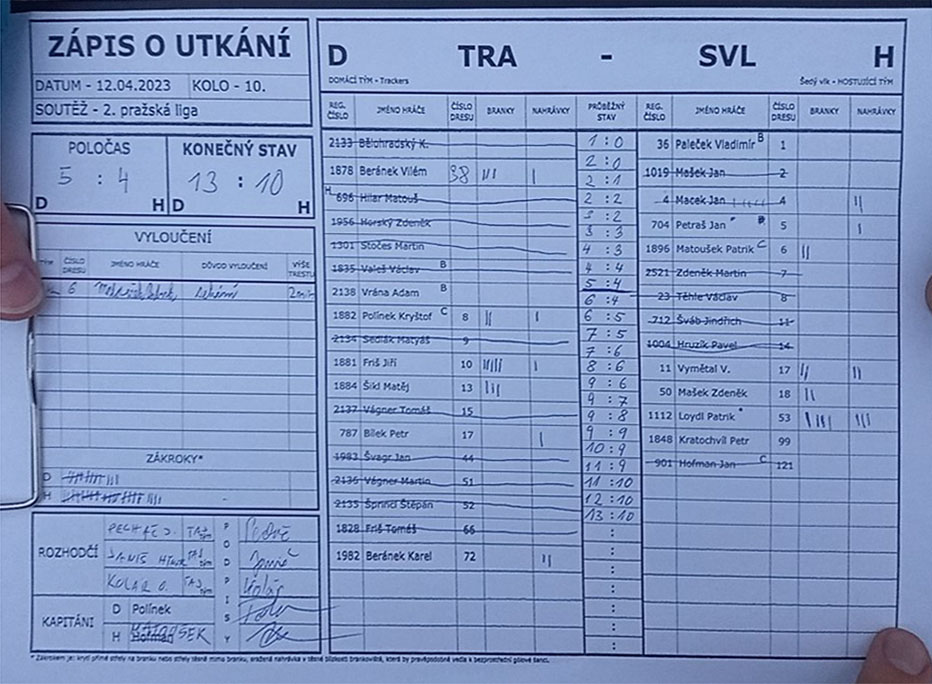 ZÁPIS O UTKÁNÍ
DATUM - 12.04.2023 KOLO - 10.
SOUTĚŽ - 2. pražská liga
POLOČAS KONEČNÝ STAV
5 : 4 13 : 10
D H D H
VYLOUČENÍ
ČÍSLO DRESU JMÉNO HRÁČE DŮVOD VYLOUČENÍ VÝŠE TRESTU
6
ZÁKROKY*
D
H
ROZHODČÍ
KOLAR O.
PODPISY
KAPITÁNI
D Polínek
H Hofman MATOUSEK
D TRA - SVL H
DOMÁCÍ TÝM - Trackers Šedý vlk - HOSTUJÍCÍ TÝM
REG. ČÍSLO JMÉNO HRÁČE ČÍSLO DRESU BRANKY NAHRÁVKY PRŮBĚŽNÝ STAV REG. ČÍSLO JMÉNO HRÁČE ČÍSLO DRESU BRANKY NAHRÁVKY
2133 Bělohradský K.
1878 Beránek Vilém 38 ||| |
H 696 Hilar Matouš
1956 Horský Zdeněk
1301 Stočes Martin
1835 Valeš Václav B
2138 Vrána Adam B
1882 Polínek Kryštof C 8 || |
2134 Sedlák Matyáš 9
1881 Friš Jiří 10 ||||| |
1884 Šikl Matěj 13 |||
2137 Vágner Tomáš 15
787 Bílek Petr 17 |
1983 Švagr Jan 44
2136 Vágner Martin 51
2135 Šprincl Štěpán 52
1828 Friš Tomáš 66
1982 Beránek Karel 72 ||
1 : 0
2 : 0
2 : 1
2 : 2
3 : 2
3 : 3
4 : 3
4 : 4
5 : 4
6 : 4
6 : 5
7 : 5
7 : 6
8 : 6
9 : 6
9 : 7
9 : 8
9 : 9
10 : 9
11 : 9
11 : 10
12 : 10
13 : 10
36 Paleček Vladimír B 1
1019 Mašek Jan 2
4 Macek Jan 4 ||
704 Petraš Jan 5 |
1896 Matoušek Patrik C 6 ||
2521 Zdeněk Martin 7
23 Těhle Václav 8
712 Šváb Jindřich 11
1004 Hruzík Pavel 14
11 Vymětal V. 17 || ||
50 Mašek Zdeněk 18 ||
1112 Loydl Patrik 53 |||| |||
1848 Kratochvíl Petr 99
901 Hofman Jan C 121